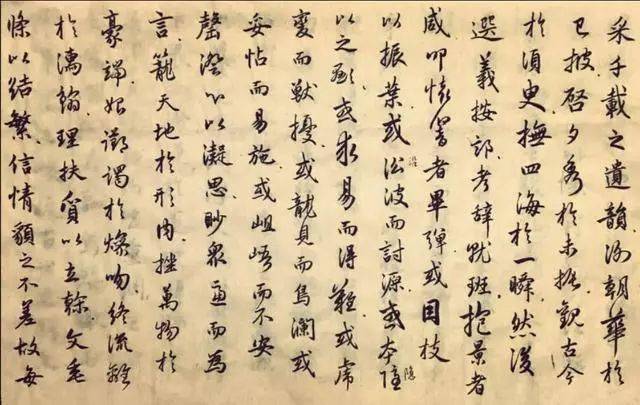 采千載之遺韻謝朝華於
已披啓夕秀於未振觀古今
於須臾撫四海於一瞬然後
選義按部考辭就班抱景者
咸叩懷響者畢彈或因枝
以振葉或沿波而討源或本隱
沿
隱
以之顯或求易而得難或虎
變而獸擾或龍見而鳥瀾或
妥帖而易施或岨峿而不安
罄澄心以凝思眇衆慮而爲
言籠天地於形内挫萬物於
豪端始躑躅於燥吻終流離
於濡翰理扶質以立幹文垂
條以結繁信情貌之不差故每